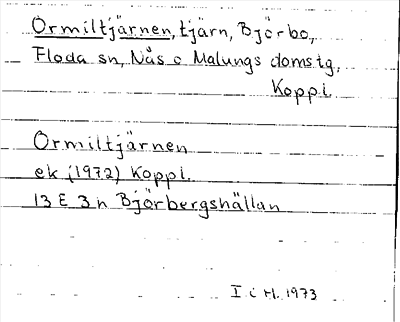 Ormiltjärnen, tjärn, Björbo,
Floda sn, Nås o Malungs domstg,
Koppl.
Ormiltjärnen
ek (1972) Koppl.
13 E 3 h Björbergshällan
I i H. 1973